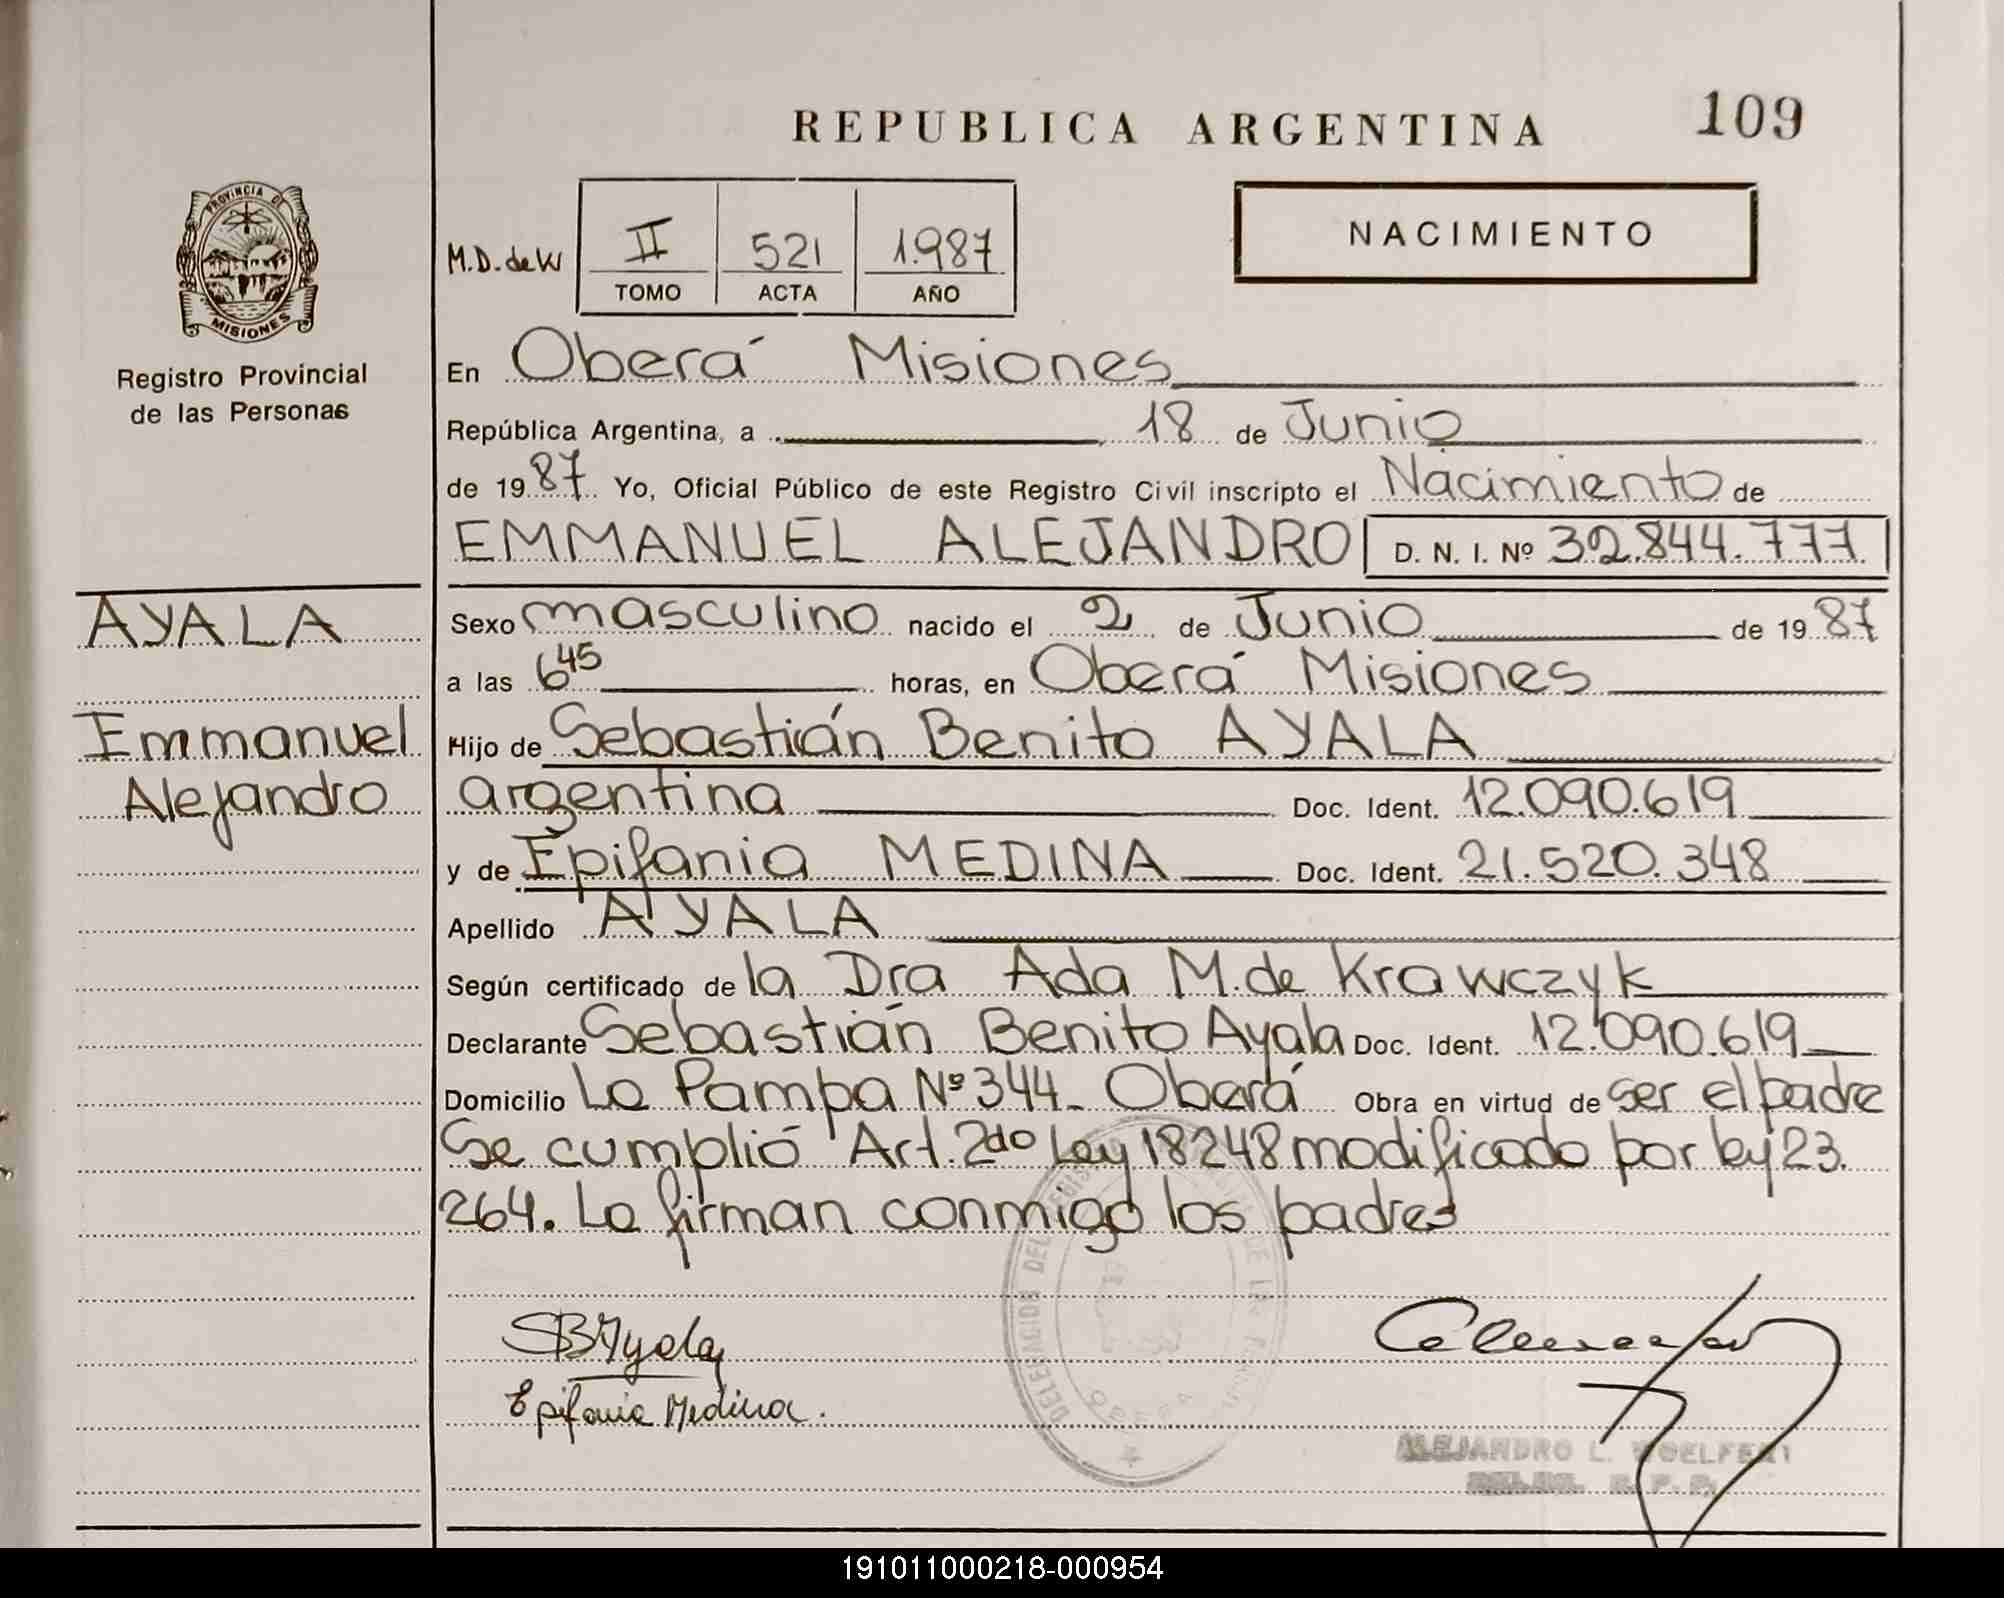 REPUBLICA ARGENTINA
109
PROVINCIA DE
MISIONES
Registro Provincial
de las Personas
M.D. de W
II 521 1.987
TOMO ACTA AÑO
NACIMIENTO
En Oberá Misiones
República Argentina, a 18 de Junio
de 1987. Yo, Oficial Público de este Registro Civil inscripto el Nacimiento de
EMMANUEL ALEJANDRO D. N. I. Nº 32.844.777
AYALA
Emmanuel
Alejandro
Sexo masculino nacido el 2 de Junio de 1987
a las 6 45 horas, en Oberá Misiones
Hijo de Sebastián Benito AYALA
argentina Doc. Ident. 12.090.619
y de Epifania MEDINA Doc. Ident. 21.520.348
Apellido AYALA
Según certificado de la Dra Ada M. de Krawczyk
Declarante Sebastián Benito Ayala Doc. Ident. 12.090.619
Domicilio La Pampa Nº 344 - Oberá Obra en virtud de ser el padre
Se cumplió Art. 2do Ley 18248 modificado por ley 23.
264. La firman conmigo los padres
SBAyala
Epifania Medina.
DELEGACION DEL
OBERA
ALEJANDRO L. WOELFERT
191011000218-000954